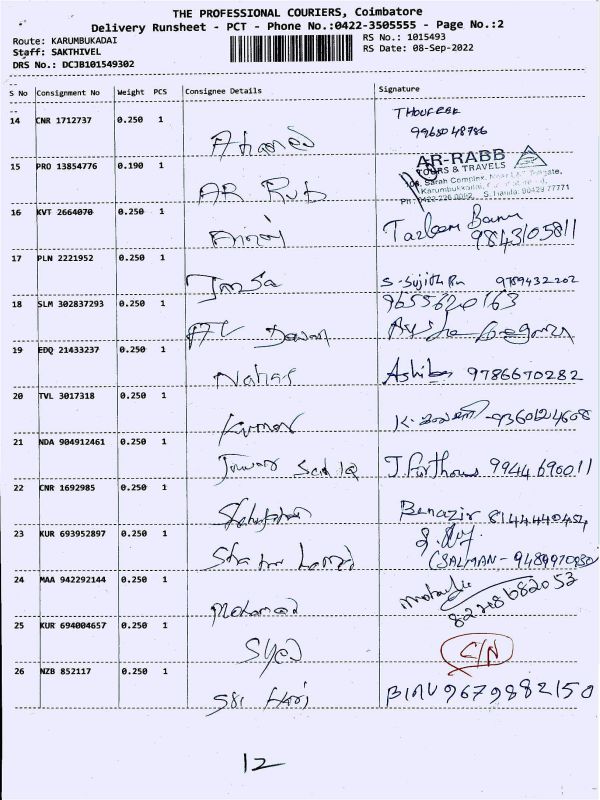 THE PROFESSIONAL COURIERS, Coimbatore
Delivery Runsheet - PCT - Phone No.:0422-3505555 - Page No.:2
Route: KARUMBUKADAI
RS No.: 1015493
Staff: SAKTHIVEL
RS Date: 08-Sep-2022
DRS No.: DCJB101549302
S No Consignment No Weight PCS Consignee Details Signature
14 CNR 1712737 0.250 1
THOUFEEK
9965048786
Ahamed
15 PRO 13854776 0.190 1
AR-RABB
TOURS & TRAVELS
Sarah Complex,
Karumbukkadai,
AR Rub
16 KVT 2664070 0.250 1
Tazleem Banu
9843105811
17 PLN 2221952 0.250 1
Imsa
S. Sujith 9789432202
18 SLM 302837293 0.250 1
9655620163
19 EDQ 21433237 0.250 1
Nahas
Ashika 9786670282
20 TVL 3017318 0.250 1
Kumar
9360124608
21 NDA 904912461 0.250 1
Sadiq
J. Firthous 9944690011
22 CNR 1692985 0.250 1
Benazir
23 KUR 693952897 0.250 1
(SALMAN - 9489970830
24 MAA 942292144 0.250 1
Mohamad
8248682053
25 KUR 694004657 0.250 1
Syed
C/N
26 NZB 852117 0.250 1
Sri Hari
BINU 9679882150
12